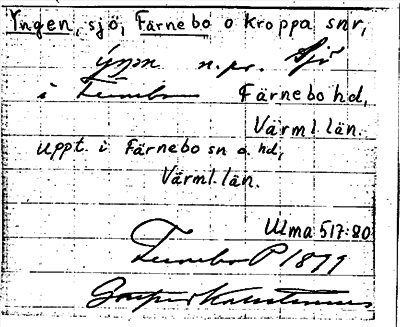 Yngen, sjö, Färnebo o Kroppa snr,
n. pr. Sjö
i Färnebo Färnebo hd,
Värml. län.
Uppt. i Färnebo sn o. hd,
Värml. län.
Ulma 517:80
Färnebo 1879